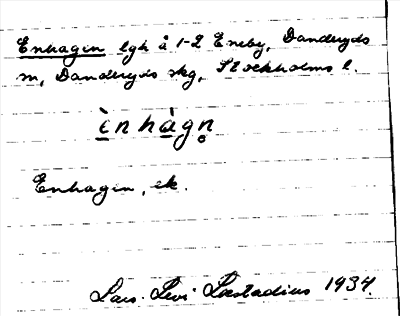 Enhagen lgh å 1-2 Eneby, Danderyds
sn, Danderyds skg, Stockholms l.
ìnhàgn̥
Enhagen, ek.
Lars-Levi Læstadius 1934